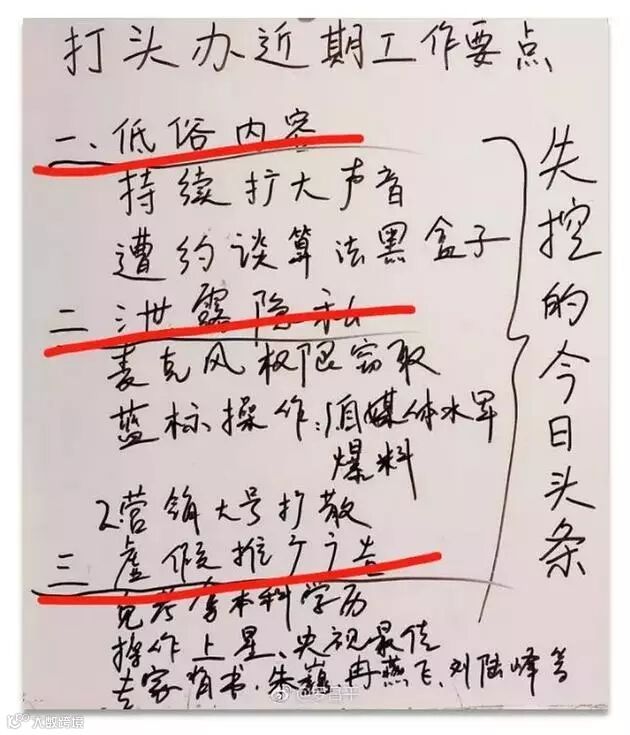 打头办近期工作要点
一、低俗内容
持续扩大声音
遭约谈算法黑盒子
二 泄露隐私
麦克风权限窃取
蓝标操作:1自媒体水军
爆料
2.营销大号扩散
三 虚假推广广告
免考拿本科学历
操作上星、央视最佳
专家背书.朱巍.冉燕飞、刘陆峰等
失控的今日头条
大数跨境